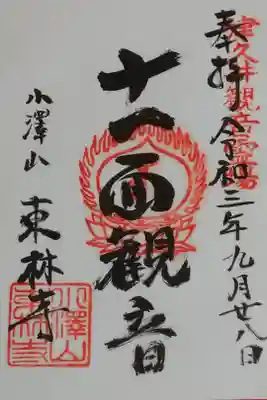 奉拝 令和三年九月廿八日
津久井観音霊場
十一面観音
小澤山
東林寺
小澤山東林寺